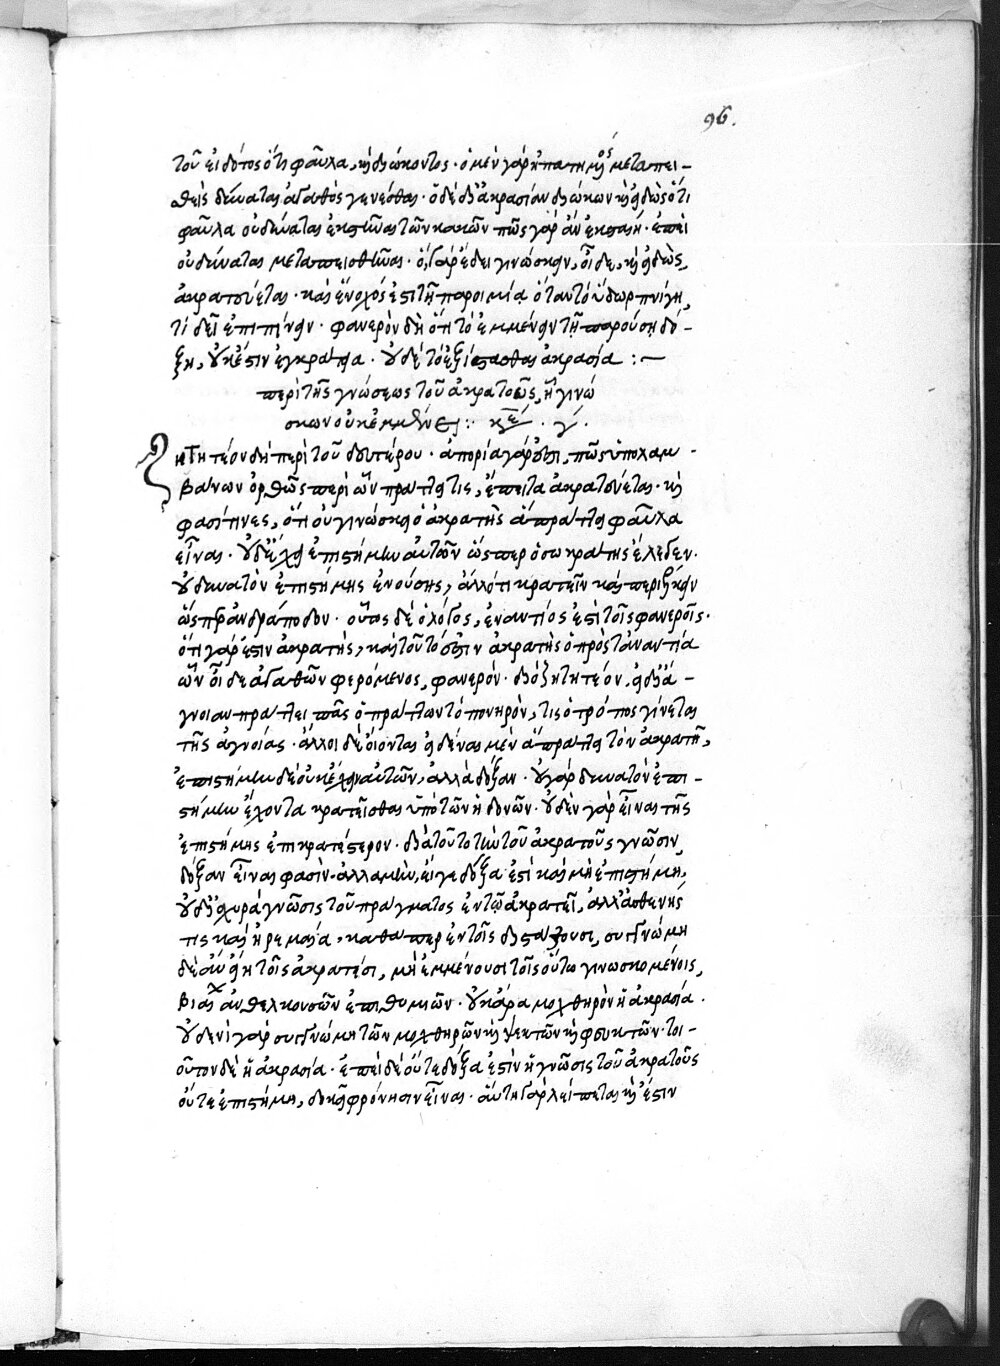 96.
τοῦ εἰδότος ὅτι φαῦλα, καὶ διώκοντος· ὁ μὲν γὰρ ἠπατημένος μεταπει-
σθεὶς δύναται ἀγαθὸς γενέσθαι· ὁ δὲ δι' ἀκρασίαν διώκων καὶ εἰδὼς ὅτι
φαῦλα οὐ δύναται ἐκστῆναι τῶν κακῶν πῶς γὰρ ἂν ἐκσταίη· ἐπεὶ
οὐ δύναται μεταπεισθῆναι· ὃ γὰρ ἔδει γινώσκειν, οἶδε, καὶ εἰδὼς,
ἀκρατεύεται· καὶ ἔνοχός ἐστι τῇ παροιμίᾳ ὅταν τὸ ὕδωρ πνίγῃ,
τί δεῖ ἐπιπίνειν· φανερὸν δὴ ὅτι τὸ ἐμμένειν τῇ παρούσῃ δό-
ξῃ, οὐκ ἔστιν ἐγκράτεια· οὐδὲ τὸ ἐξίστασθαι ἀκρασία :—
περὶ τῆς γνώσεως τοῦ ἀκρατοῦς, ᾗ γινώ
σκων οὐκ ἐμμένει :· κεφ. γ.
Ζητητέον δὴ περὶ τοῦ δευτέρου· ἀπορία γάρ ἐστι, πῶς ὑπολαμ-
βάνων ὀρθῶς περὶ ὧν πράττει τις, ἔπειτα ἀκρατεύεται· καὶ
φασί τινες, ὅτι οὐ γινώσκει ὁ ἀκρατὴς ἃ πράττει φαῦλα
εἶναι· οὐδ' ἔχει ἐπιστήμην αὐτῶν ὥσπερ ὁ σωκράτης ἔλεγεν·
οὐ δυνατὸν ἐπιστήμης ἐνούσης, ἄλλο τι κρατεῖν καὶ περιέλκειν
ὥσπερ ἀνδράποδον· οὗτος δὲ ὁ λόγος, ἐναντίος ἐστὶ τοῖς φανεροῖς·
ὅτι γὰρ ἔστιν ἀκρατὴς, καὶ τοῦτό ἐστιν ἀκρατὴς ὁ πρὸς τἀναντία
ὧν οἶδε ἀγαθῶν φερόμενος, φανερόν· διὸ ζητητέον, εἰ δι' ἄ-
γνοιαν πράττει πᾶς ὁ πράττων τὸ πονηρὸν, τίς ὁ τρόπος γίνεται
τῆς ἀγνοίας· ἄλλοι δὲ οἴονται εἰδέναι μὲν ἃ πράττει τὸν ἀκρατῆ,
ἐπιστήμην δὲ οὐκ ἔχειν αὐτῶν, ἀλλὰ δόξαν· οὐ γὰρ δυνατὸν ἐπι-
στήμην ἔχοντα κρατεῖσθαι ὑπὸ τῶν ἡδονῶν· οὐδὲν γὰρ εἶναι τῆς
ἐπιστήμης ἐπικρατέστερον· διὰ τοῦτο τὴν τοῦ ἀκρατοῦς γνῶσιν,
δόξαν εἶναι φασὶν· ἀλλὰ μὴν, εἴγε δόξα ἐστὶ καὶ μὴ ἐπιστήμη,
οὐδ' ἰσχυρὰ γνῶσις τοῦ πράγματος ἐν τῷ ἀκρατεῖ, ἀλλ' ἀσθενής
τις καὶ ἠρεμαία, καθάπερ ἐν τοῖς διστάζουσι, συγγνώμη
δὲ ἀνείη τοῖς ἀκρατέσι, μὴ ἐμμένουσι τοῖς οὕτω γινωσκομένοις,
βίᾳ ἀνθελκουσῶν ἐπιθυμιῶν· οὐκ ἄρα μοχθηρὸν ἡ ἀκρασία·
οὐδενὶ γὰρ συγγνώμη τῶν μοχθηρῶν καὶ ψεκτῶν καὶ φευκτῶν· τοι-
οῦτον δὲ ἡ ἀκρασία· ἐπεὶ δὲ οὔτε δόξα ἐστὶν ἡ γνῶσις τοῦ ἀκρατοῦς
οὔτε ἐπιστήμη, δοκεῖ φρόνησιν εἶναι· αὕτη γὰρ λείπεται καὶ ἔστιν